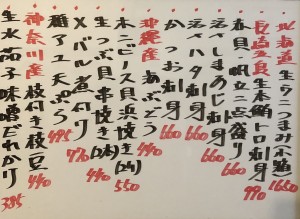 北海道 生ウニつまみ(小箱) 1650
長崎五島 生本鮪トロ刺身 990
春貝・帆立 二点盛り 660
活〆しまあじ刺身 660
活〆ハタ刺身 660
かつお刺身 660
沖縄産 海ぶどう 440
ホンビノス貝浜焼き(2ケ) 550
生つぶ貝串焼き(2本)
メバル煮付け 770
稚アユ天ぷら 495
神奈川産 枝付き枝豆 440
生水茄子 味噌だれかけ 385